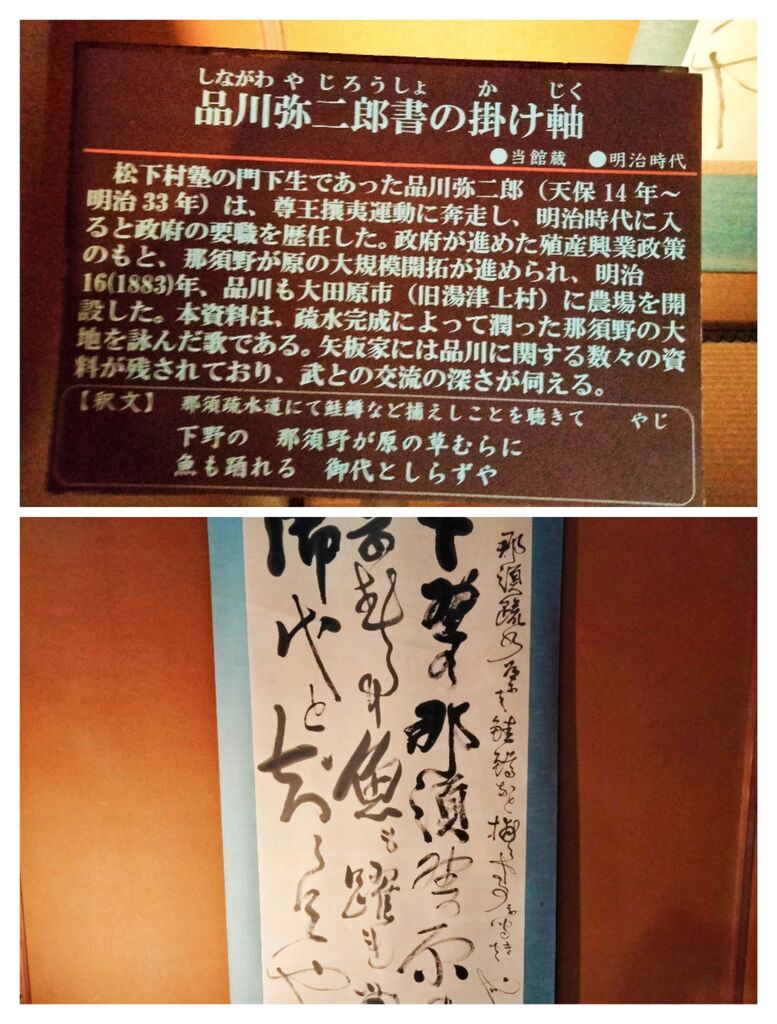 しながわ や じろうしょ か じく
品川弥二郎書の掛け軸
●当館蔵 ●明治時代
松下村塾の門下生であった品川弥二郎（天保 14 年～
明治 33 年）は、尊王攘夷運動に奔走し、明治時代に入
ると政府の要職を歴任した。政府が進めた殖産興業政策
のもと、那須野が原の大規模開拓が進められ、明治
16(1883)年、品川も大田原市（旧湯津上村）に農場を開
設した。本資料は、疏水完成によって潤った那須野の大
地を詠んだ歌である。矢板家には品川に関する数々の資
料が残されており、武との交流の深さが伺える。
【釈文】 那須疏水道にて鮭鱒など捕えしことを聴きて やじ
下野の 那須野が原の草むらに
魚も踊れる 御代としらずや
下野の那須野の原
魚も躍れる
御代と知らずや